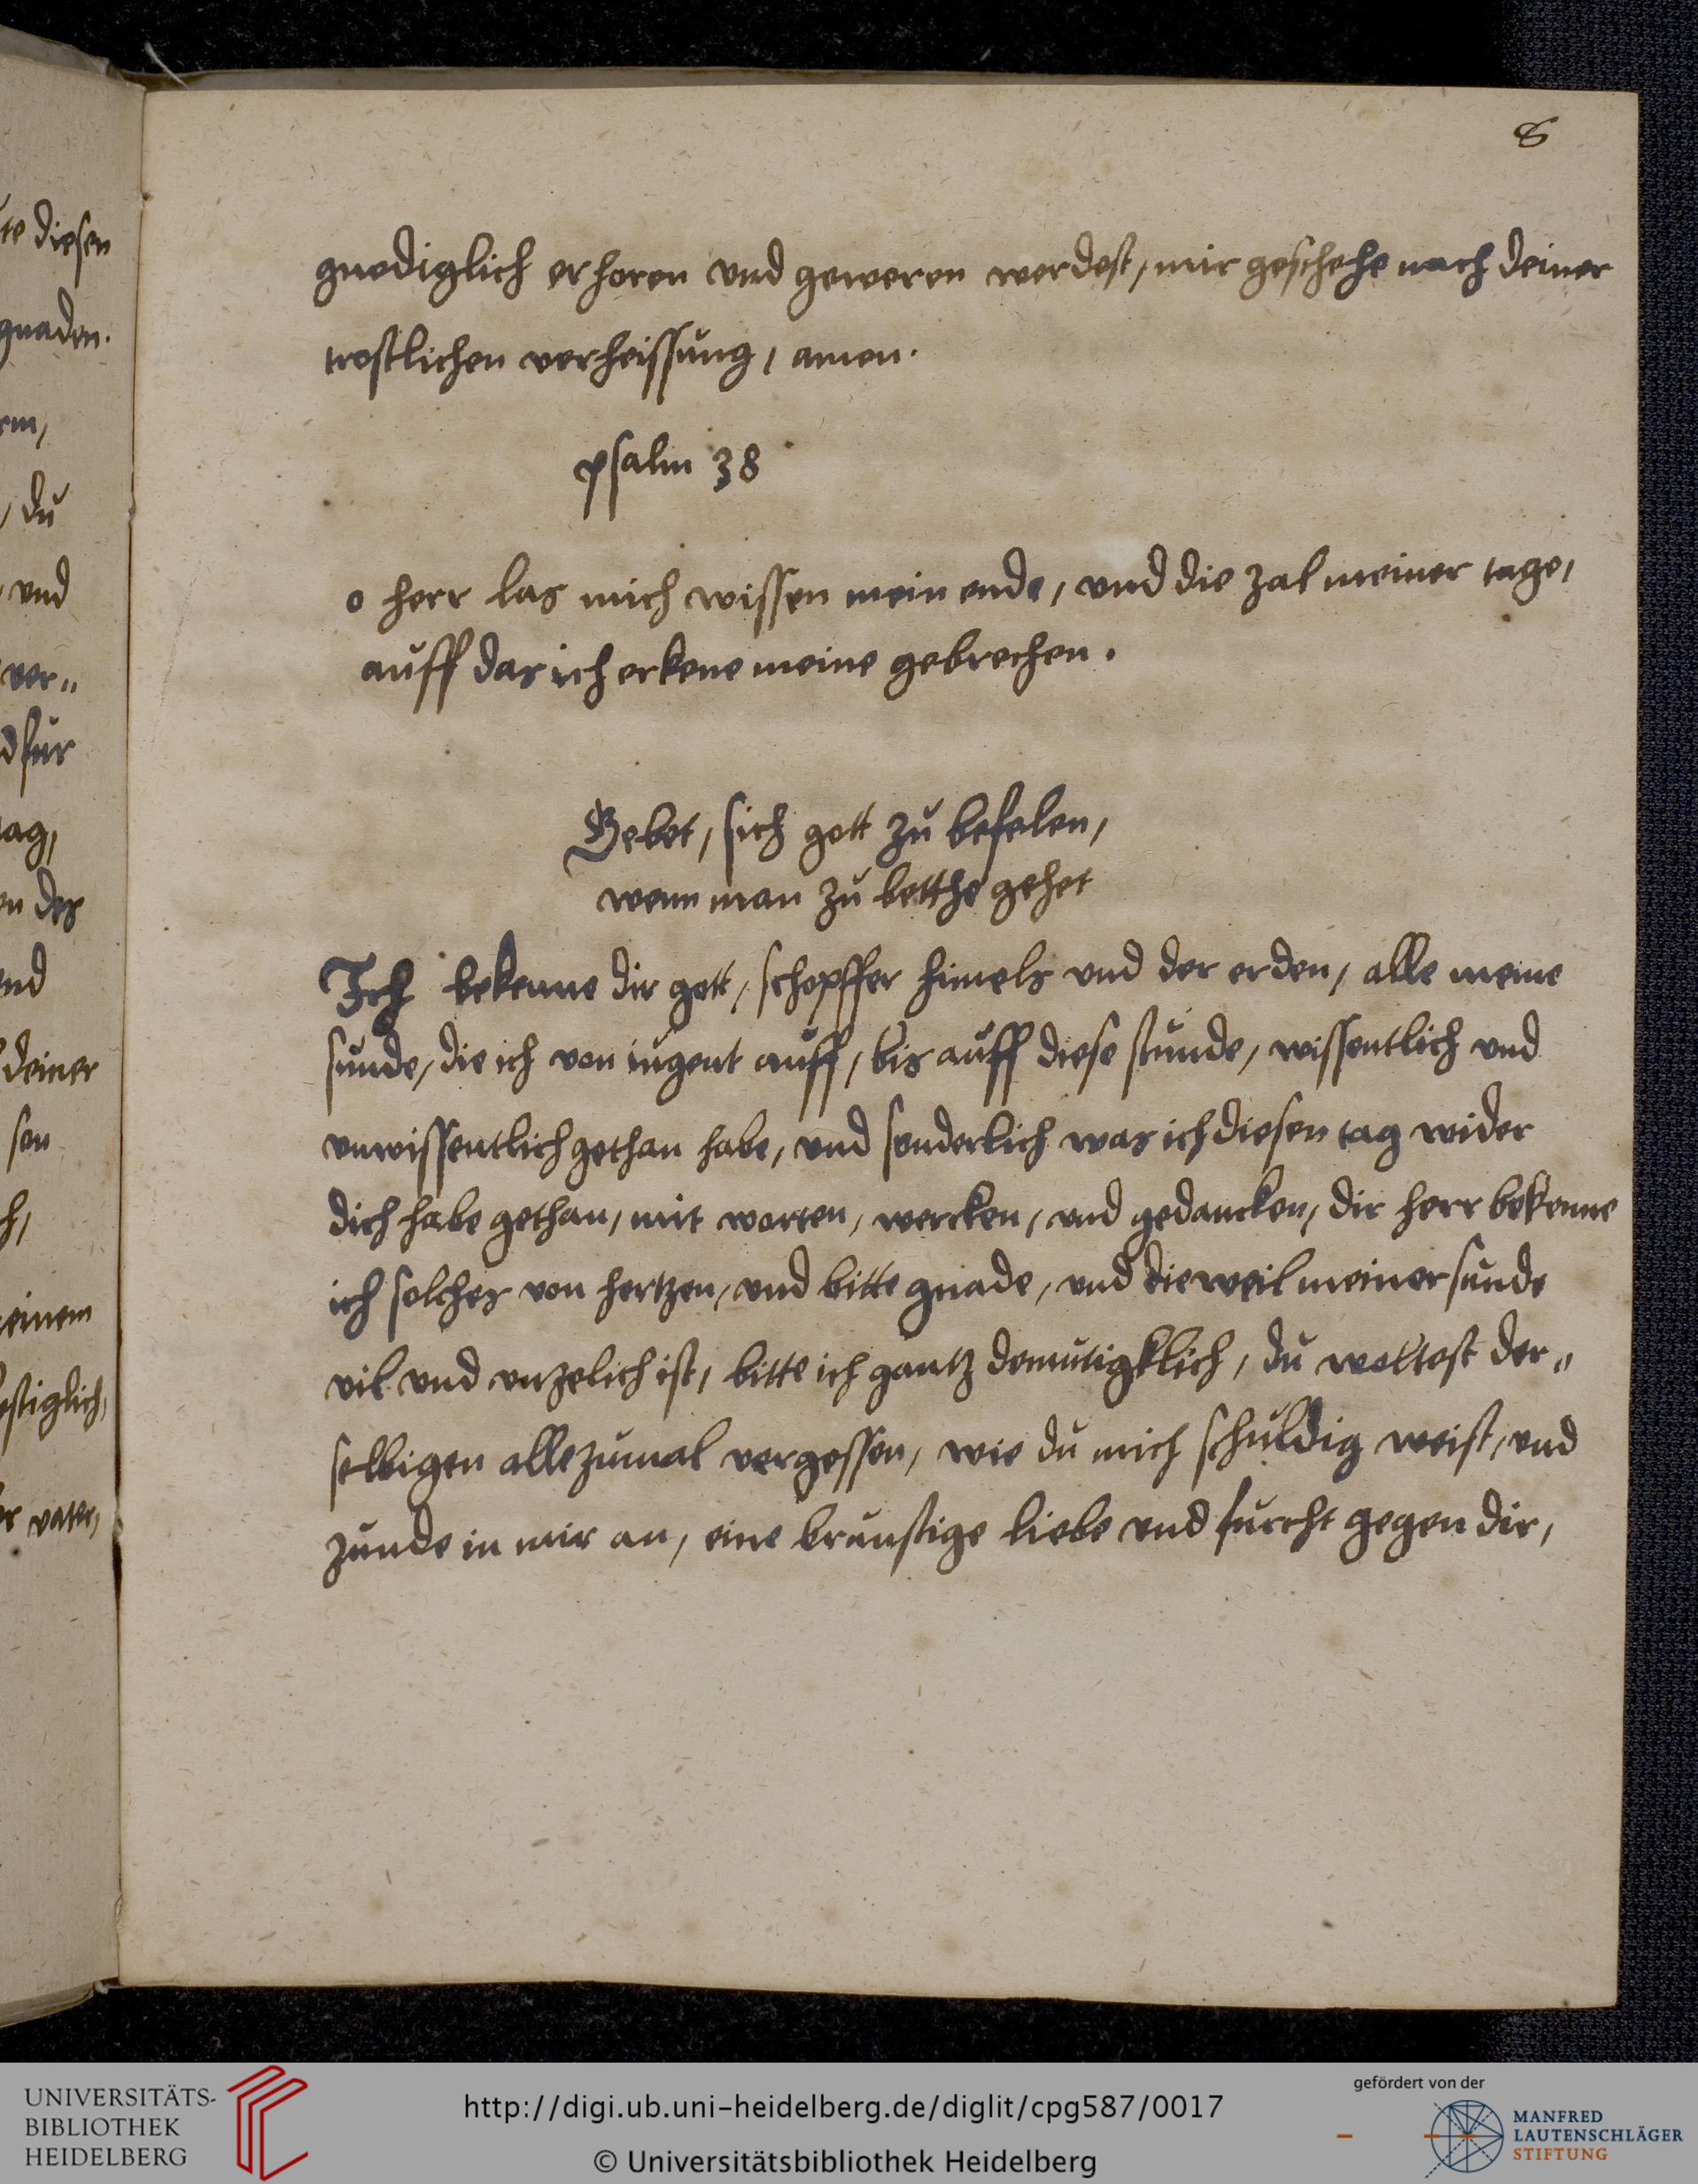 8
gnediglich erhoren vnd geweren werdest, mir geschehe nach deiner
trostlichen verheissung, amen.
psalm 38
o herr las mich wissen mein ende, vnd die zal meiner tage,
auff das ich erkene meine gebrechen.
Gebet, sich gott zu befelen,
wenn man zu betthe gehet
Ich bekenne dir gott, schopffer himels vnd der erden, alle meine
sunde, die ich von iugent auff, bis auff diese stunde, wissentlich vnd
vnwissentlich gethan habe, vnd sonderlich was ich diesen tag wider
dich habe gethan, mit worten, wercken, vnd gedancken, dir herr bekenne
ich solches von hertzen, vnd bitte gnade, vnd dieweil meiner sunde
vil vnd vnzelich ist, bitte ich gantz demutigklich, du wollest der„
selbigen alle zumal vergessen, wie du mich schuldig weist, vnd
zunde in mir an, eine brunstige liebe vnd furcht gegen dir,
te diesen
gnaden.
du
vnd
ver„
fur
tag,
des
deiner
einem
vater,
UNIVERSITÄTS-
BIBLIOTHEK
HEIDELBERG
http://digi.ub.uni-heidelberg.de/diglit/cpg587/0017
© Universitätsbibliothek Heidelberg
gefördert von der
MANFRED
LAUTENSCHLÄGER
STIFTUNG